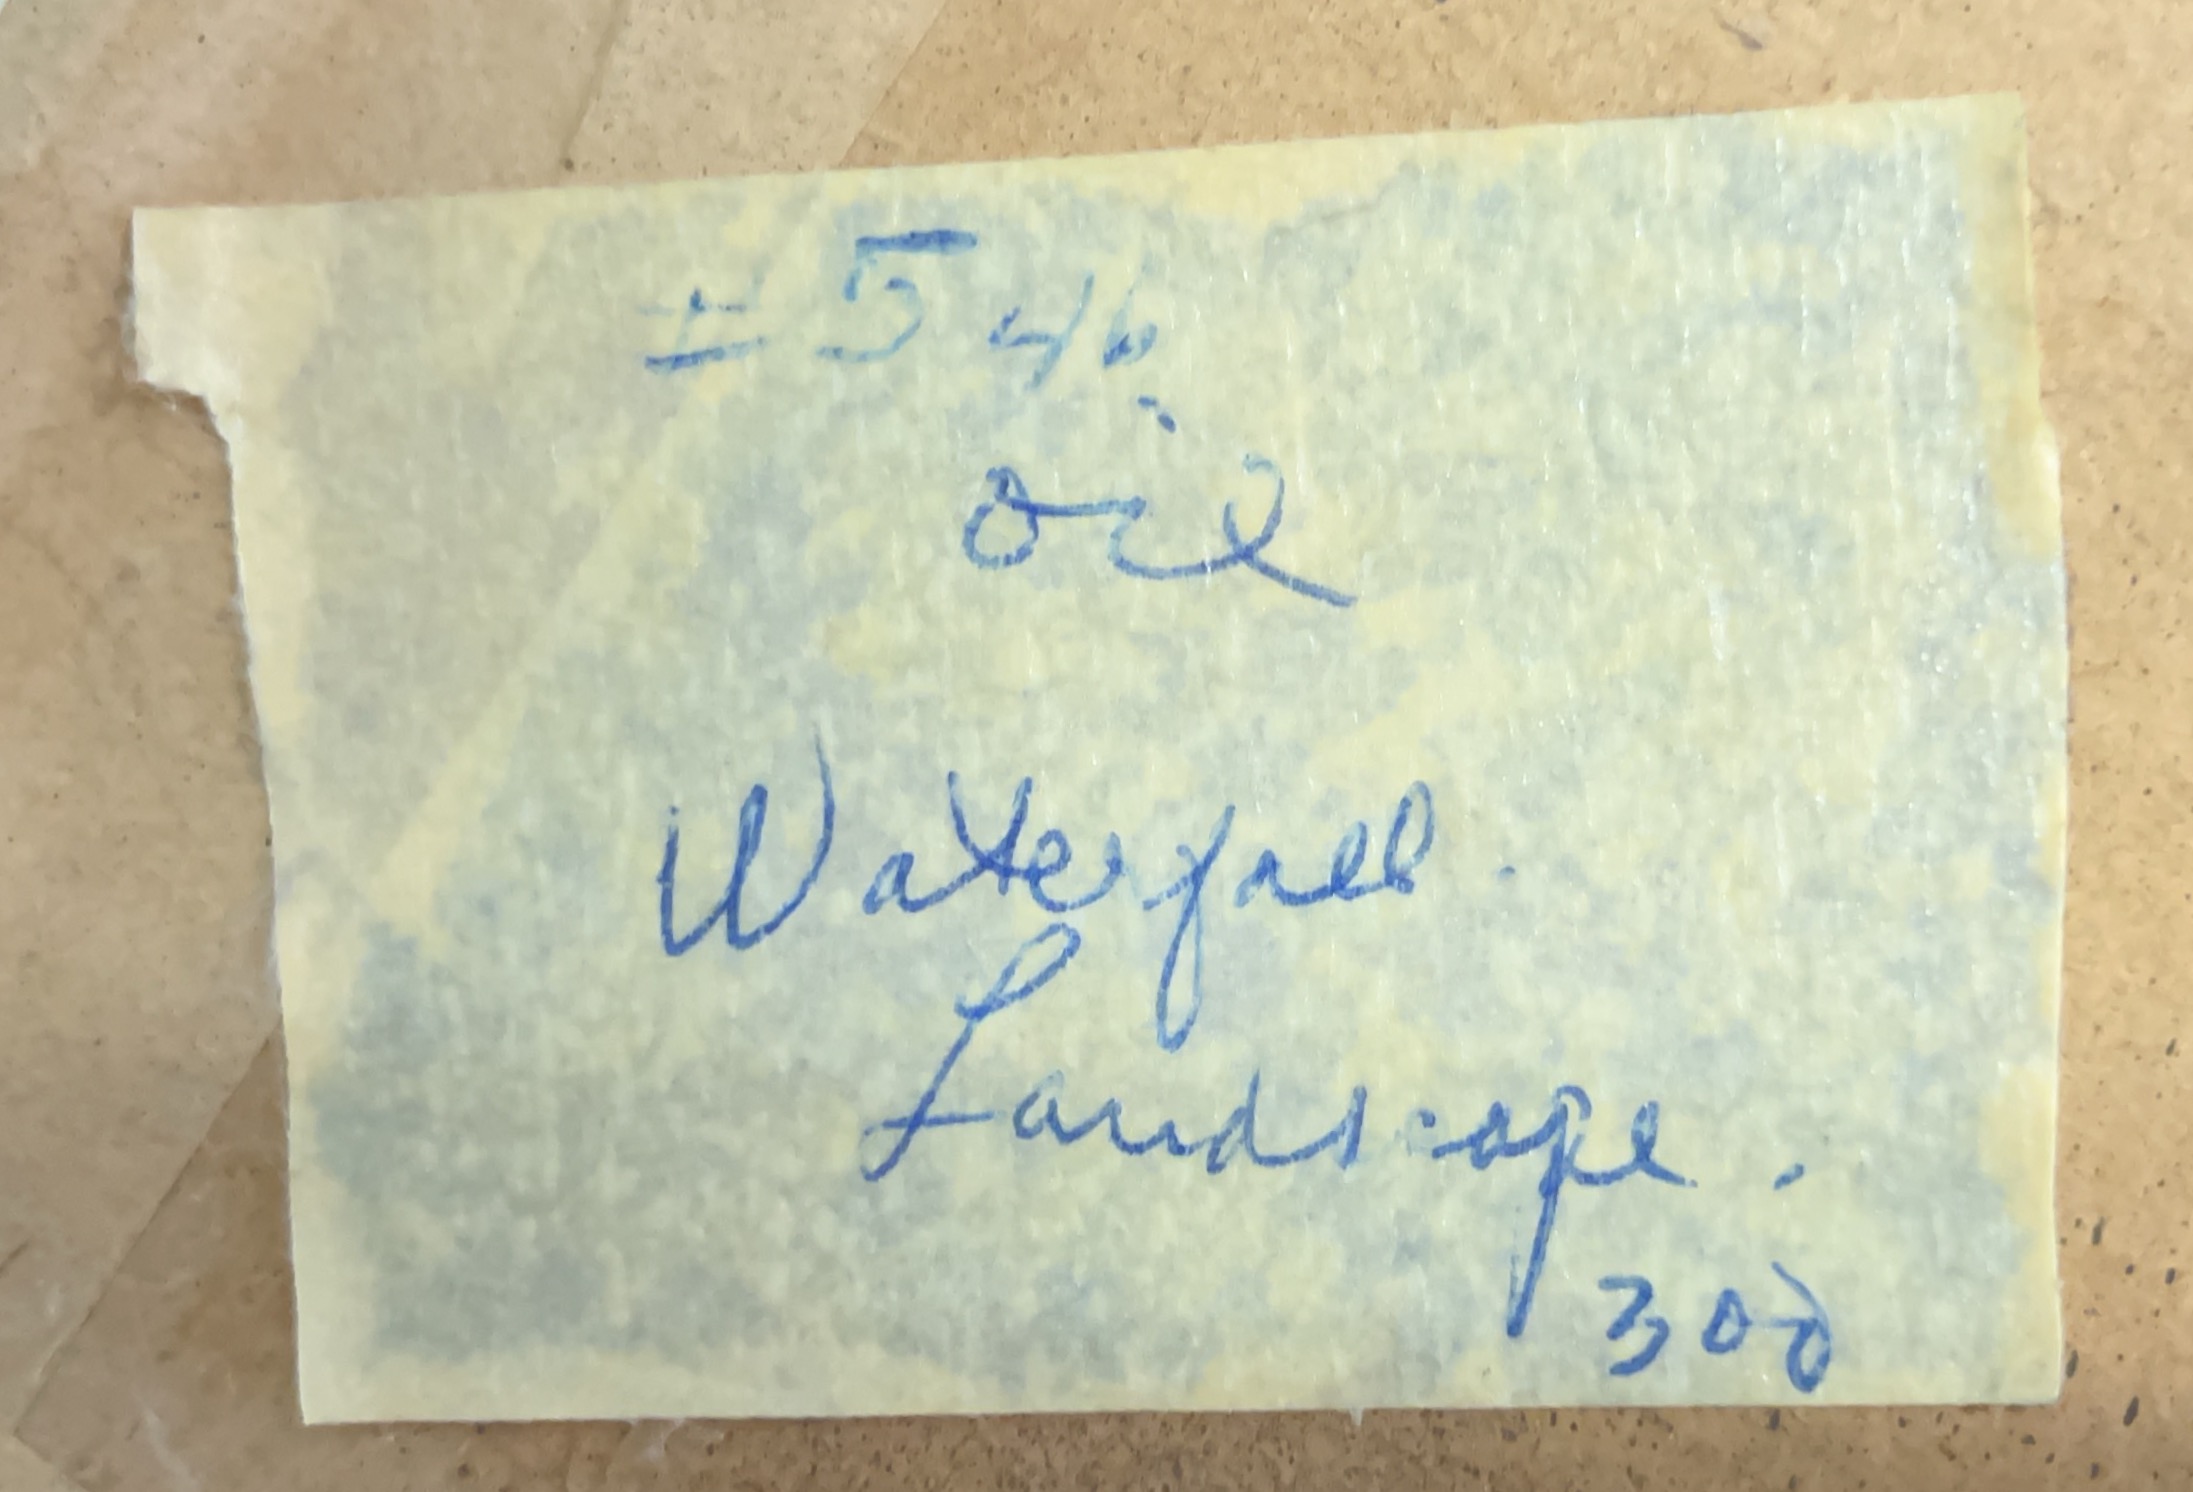 # 546
oil
Waterfall.
Landscape.
300